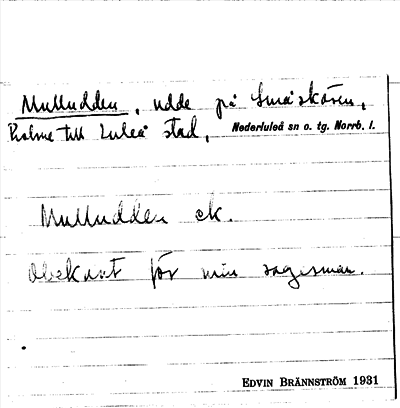 Mulludden, udde på Småskären,
Holme till Luleå stad, Nederluleå sn o. tg. Norrb. l.
Mulludden ek.
Obekant för min sagesman.
EDVIN BRÄNNSTRÖM 1931